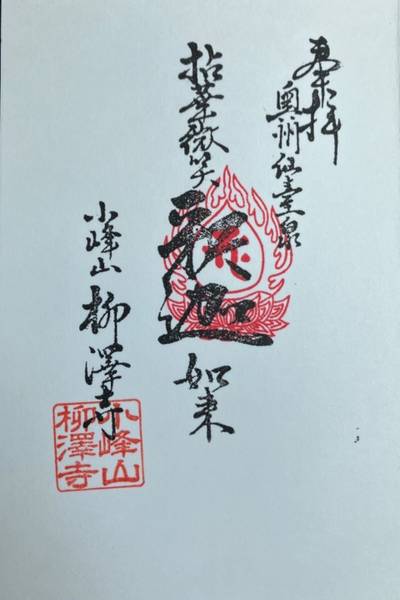 奉拝
奥州仙臺泉
拈華微笑
釈迦如来
小峰山 柳澤寺
小峰山
柳澤寺